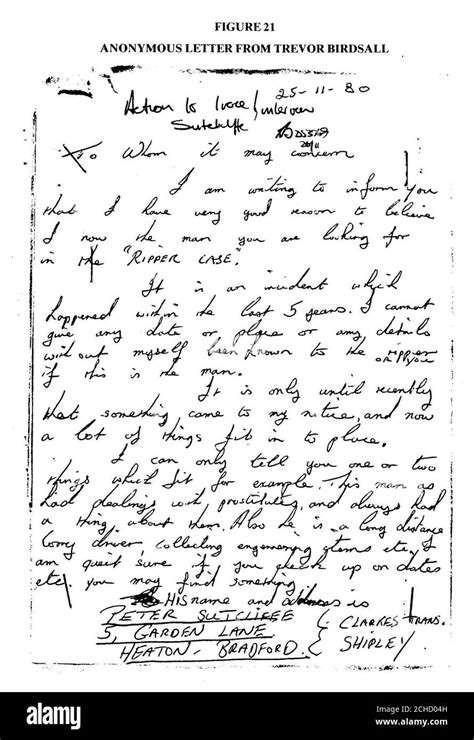 FIGURE 21
ANONYMOUS LETTER FROM TREVOR BIRDSALL
25-11-80
Action to / interview
Sutcliffe
To Whom it may concern
I am writing to inform you
that I have very good reason to believe
I now the man you are looking for
in the "RIPPER CASE".
It is an incident which
happened within the last 5 years. I cannot
give any date or place or any details
without myself been known to the ripper
or you
if this is the man.
It is only until recently
that something came to my notice, and now
a lot of things fit in to place.
I can only tell you one or two
things which fit for example. This man as
had dealings with prostitutes, and always had
a thing about them. Also he is a long distance
lorry driver, collecting engineering items etc. I
am quit sure if you check up on dates
etc. you may find something.
His name and address is
PETER SUTCLIFFE
5, GARDEN LANE
HEATON - BRADFORD.
CLARKES TRANS.
SHIPLEY
alamy
Image ID: 2CHD04H
www.alamy.com